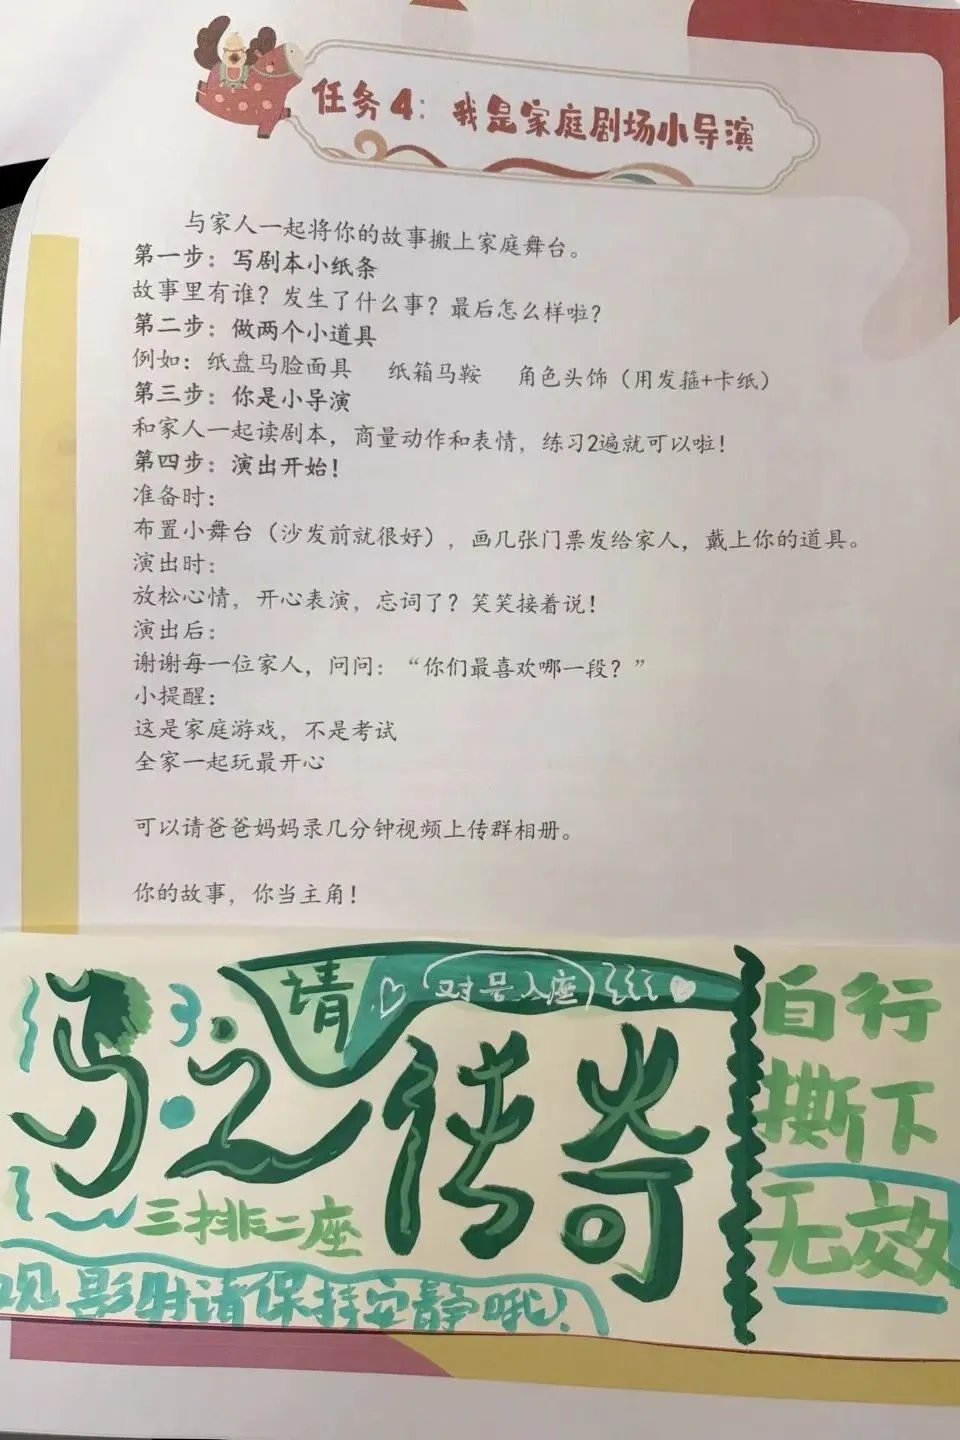 任务4：我是家庭剧场小导演
与家人一起将你的故事搬上家庭舞台。
第一步：写剧本小纸条
故事里有谁？发生了什么事？最后怎么样啦？
第二步：做两个小道具
例如：纸盘马脸面具 纸箱马鞍 角色头饰（用发箍+卡纸）
第三步：你是小导演
和家人一起读剧本，商量动作和表情，练习2遍就可以啦！
第四步：演出开始！
准备时：
布置小舞台（沙发前就很好），画几张门票发给家人，戴上你的道具。
演出时：
放松心情，开心表演，忘词了？笑笑接着说！
演出后：
谢谢每一位家人，问问：“你们最喜欢哪一段？”
小提醒：
这是家庭游戏，不是考试
全家一起玩最开心
可以请爸爸妈妈录几分钟视频上传群相册。
你的故事，你当主角！
请对号入座
马之传奇
三排二座
观影时请保持安静哦！
自行
撕下
无效